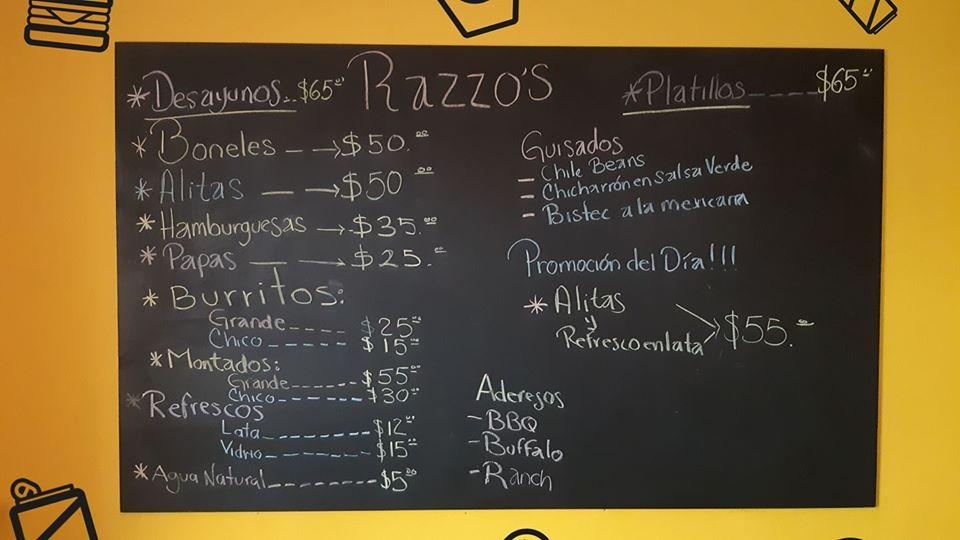 Razzo's
*Desayunos... $65.00
*Boneles – –→ $50.00
*Alitas — –→ $50.00
*Hamburguesas → $35.00
*Papas —→ $25.00
*Burritos:
Grande ---- $25.00
Chico ----- $15.00
*Montados:
Grande ---- $55.00
Chico ----- $30.00
*Refrescos
Lata ------ $12.00
Vidrio ----- $15.00
*Agua Natural ------ $5.00
*Platillos ---- $65.00
Guisados
- Chile Beans
- Chicharrón en Salsa Verde
- Bistec a la mexicana
Promoción del Día!!!
*Alitas
y
Refresco en lata > $55.00
Aderejos
-BBQ
-Buffalo
-Ranch